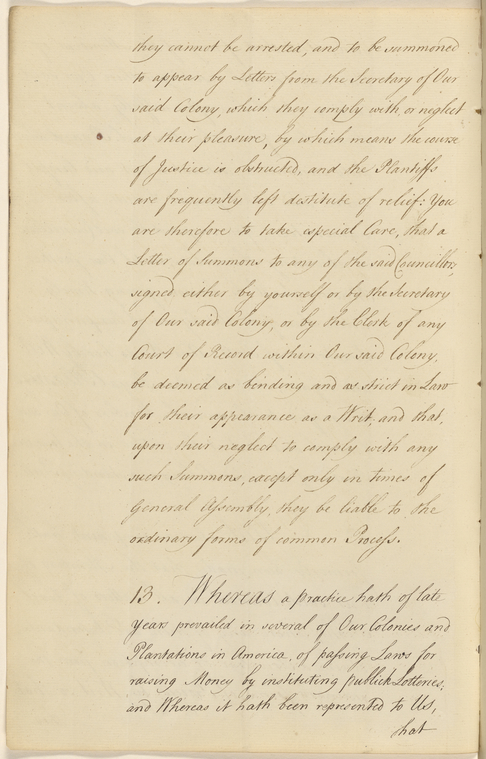 they cannot be arrested, and to be summoned
to appear by Letters from the Secretary of Our
said Colony, which they comply with, or neglect
at their pleasure, by which means the course
of Justice is obstructed, and the Plantiffs
are frequently left destitute of relief: You
are therefore to take especial Care, that a
Letter of Summons to any of the said Councillors,
signed either by yourself or by the Secretary
of Our said Colony, or by the Clerk of any
Court of Record within Our said Colony,
be deemed as binding and as strict in Law
for their appearance as a Writ; and that,
upon their neglect to comply with any
such Summons, except only in times of
General Assembly, they be liable to the
ordinary forms of common Process.
13. Whereas a practice hath of late
Years prevailed in several of Our Colonies and
Plantations in America, of passing Laws for
raising Money by instituting publick Lotteries;
and Whereas it hath been represented to Us,
that